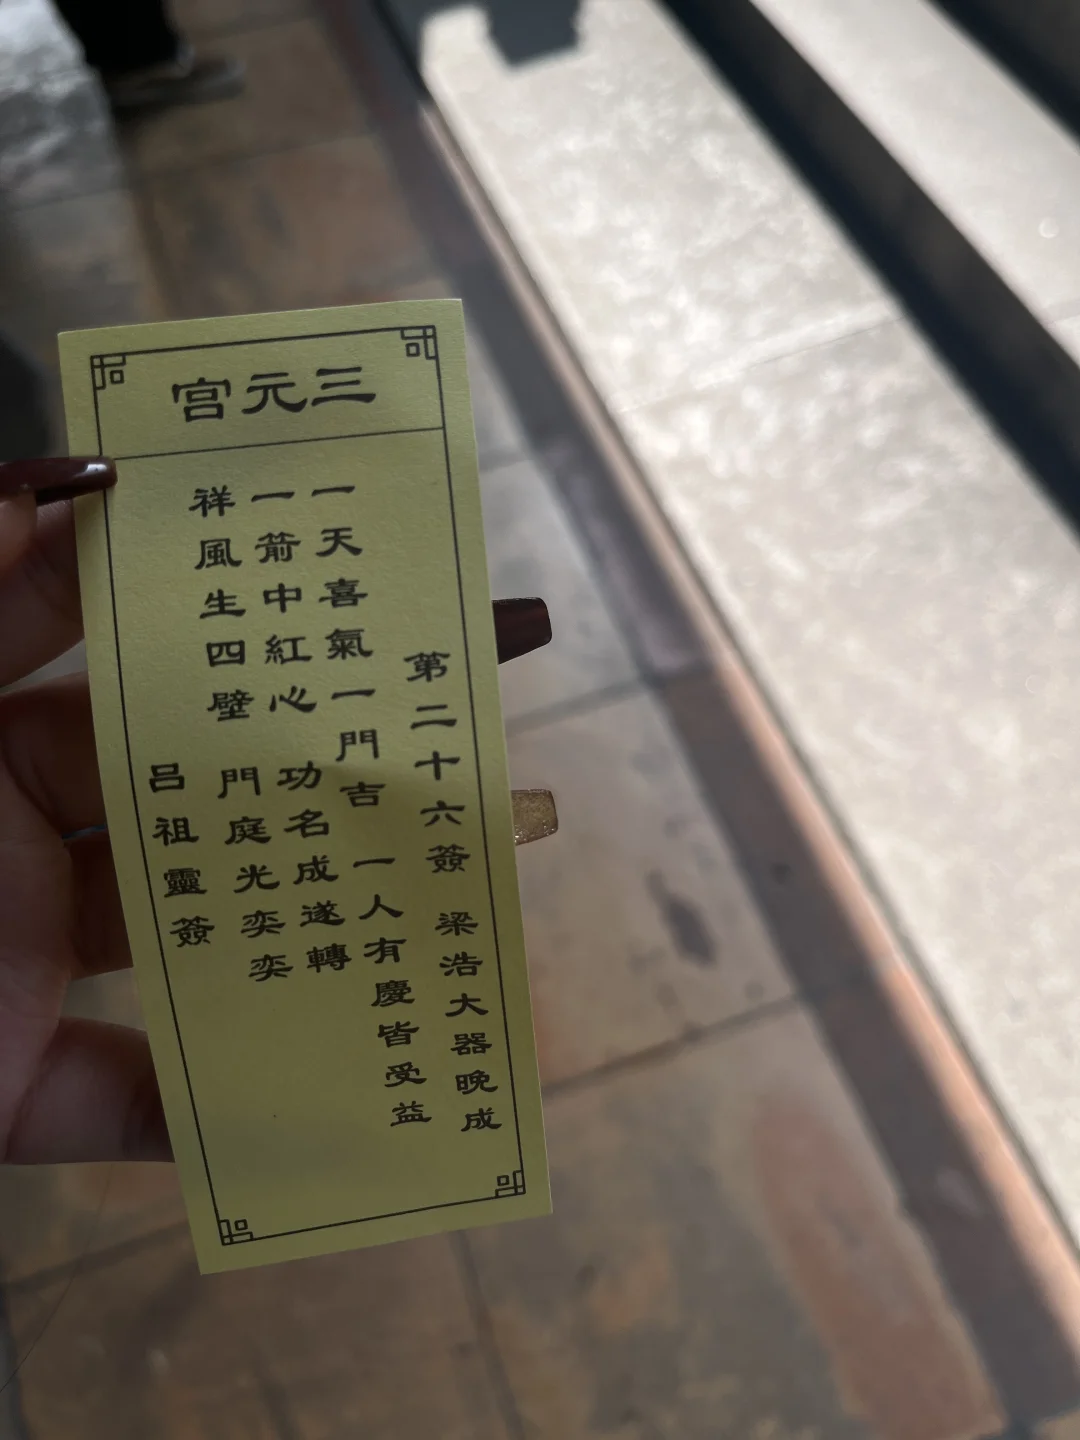 三元宮
第二十六簽 梁浩大器晚成
一天喜氣一門吉 一人有慶皆受益
一箭中紅心 功名成遂轉
祥風生四壁 門庭光奕奕
呂祖靈簽